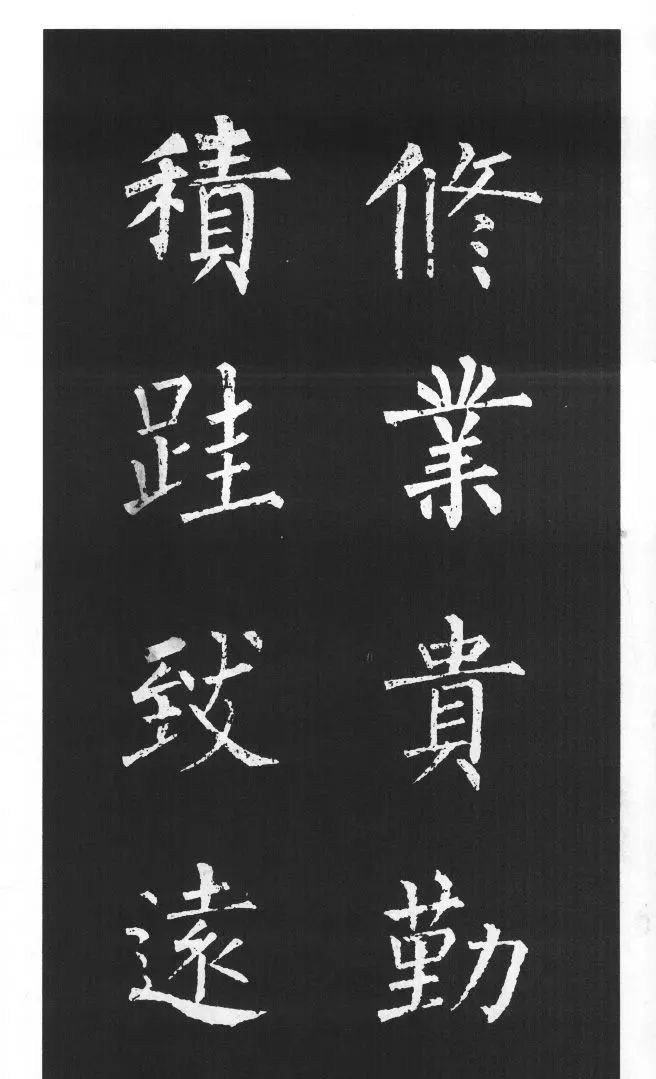 修業貴勤
積跬致遠